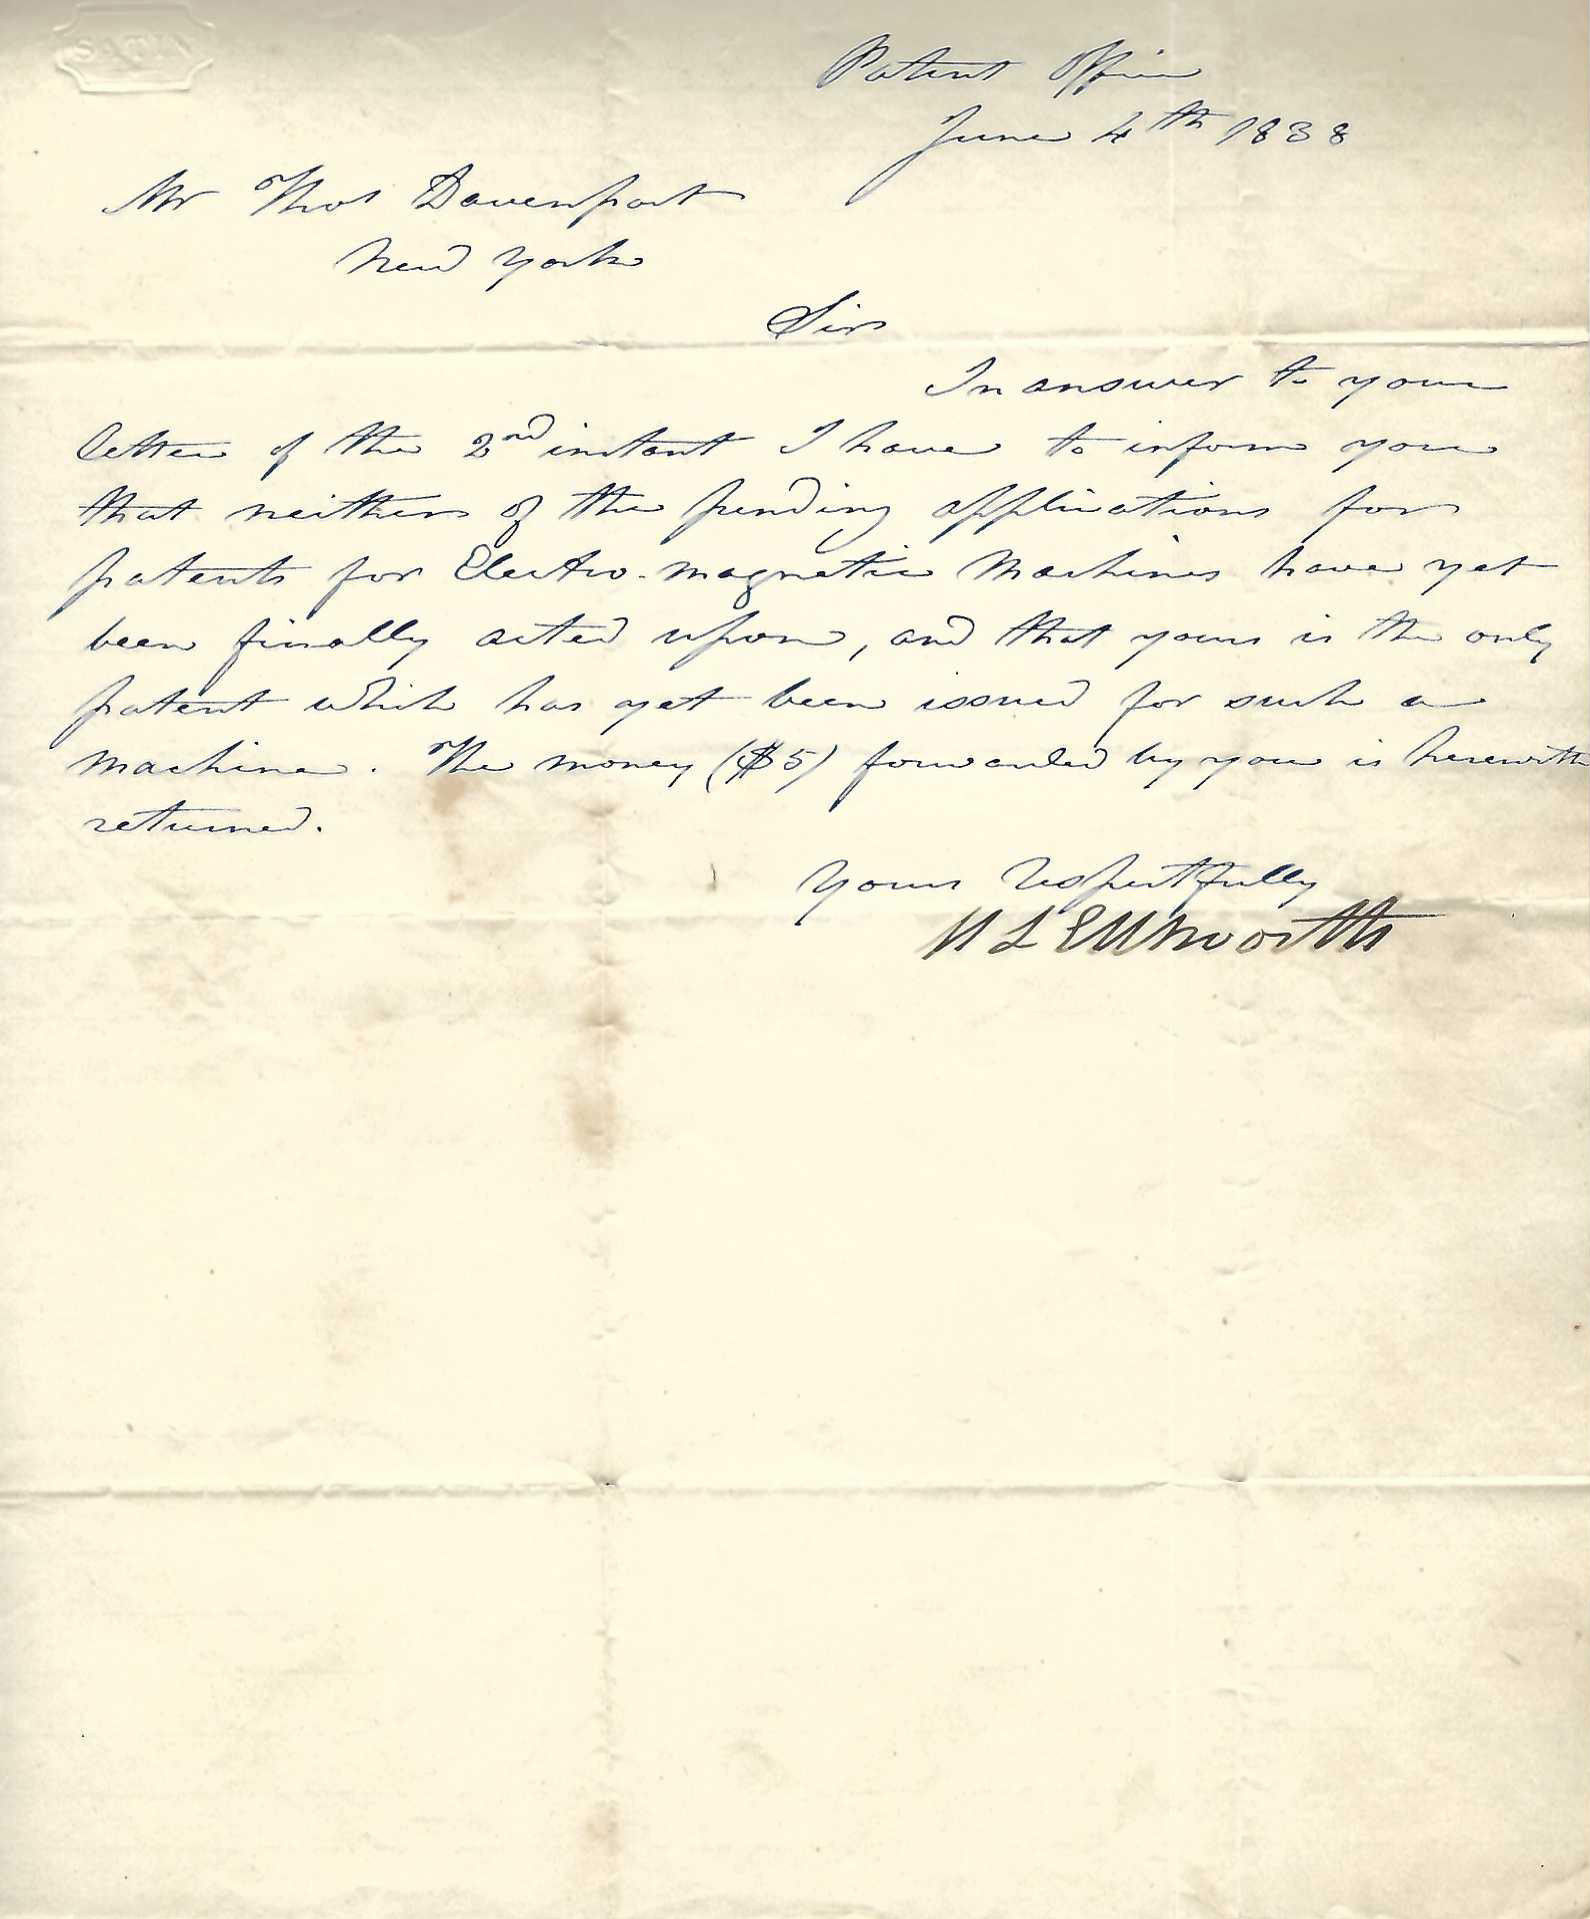 SATIN
Patent Office
June 4th 1838
Mr Thos Davenport
New York
Sir
In answer to your
letter of the 2nd instant I have to inform you
that neither of the pending applications for
patents for Electro-magnetic Machines have yet
been finally acted upon, and that yours is the only
patent which has yet been issued for such a
machine. The money ($5) forwarded by you is herewith
returned.
Yours respectfully
H L Ellsworth